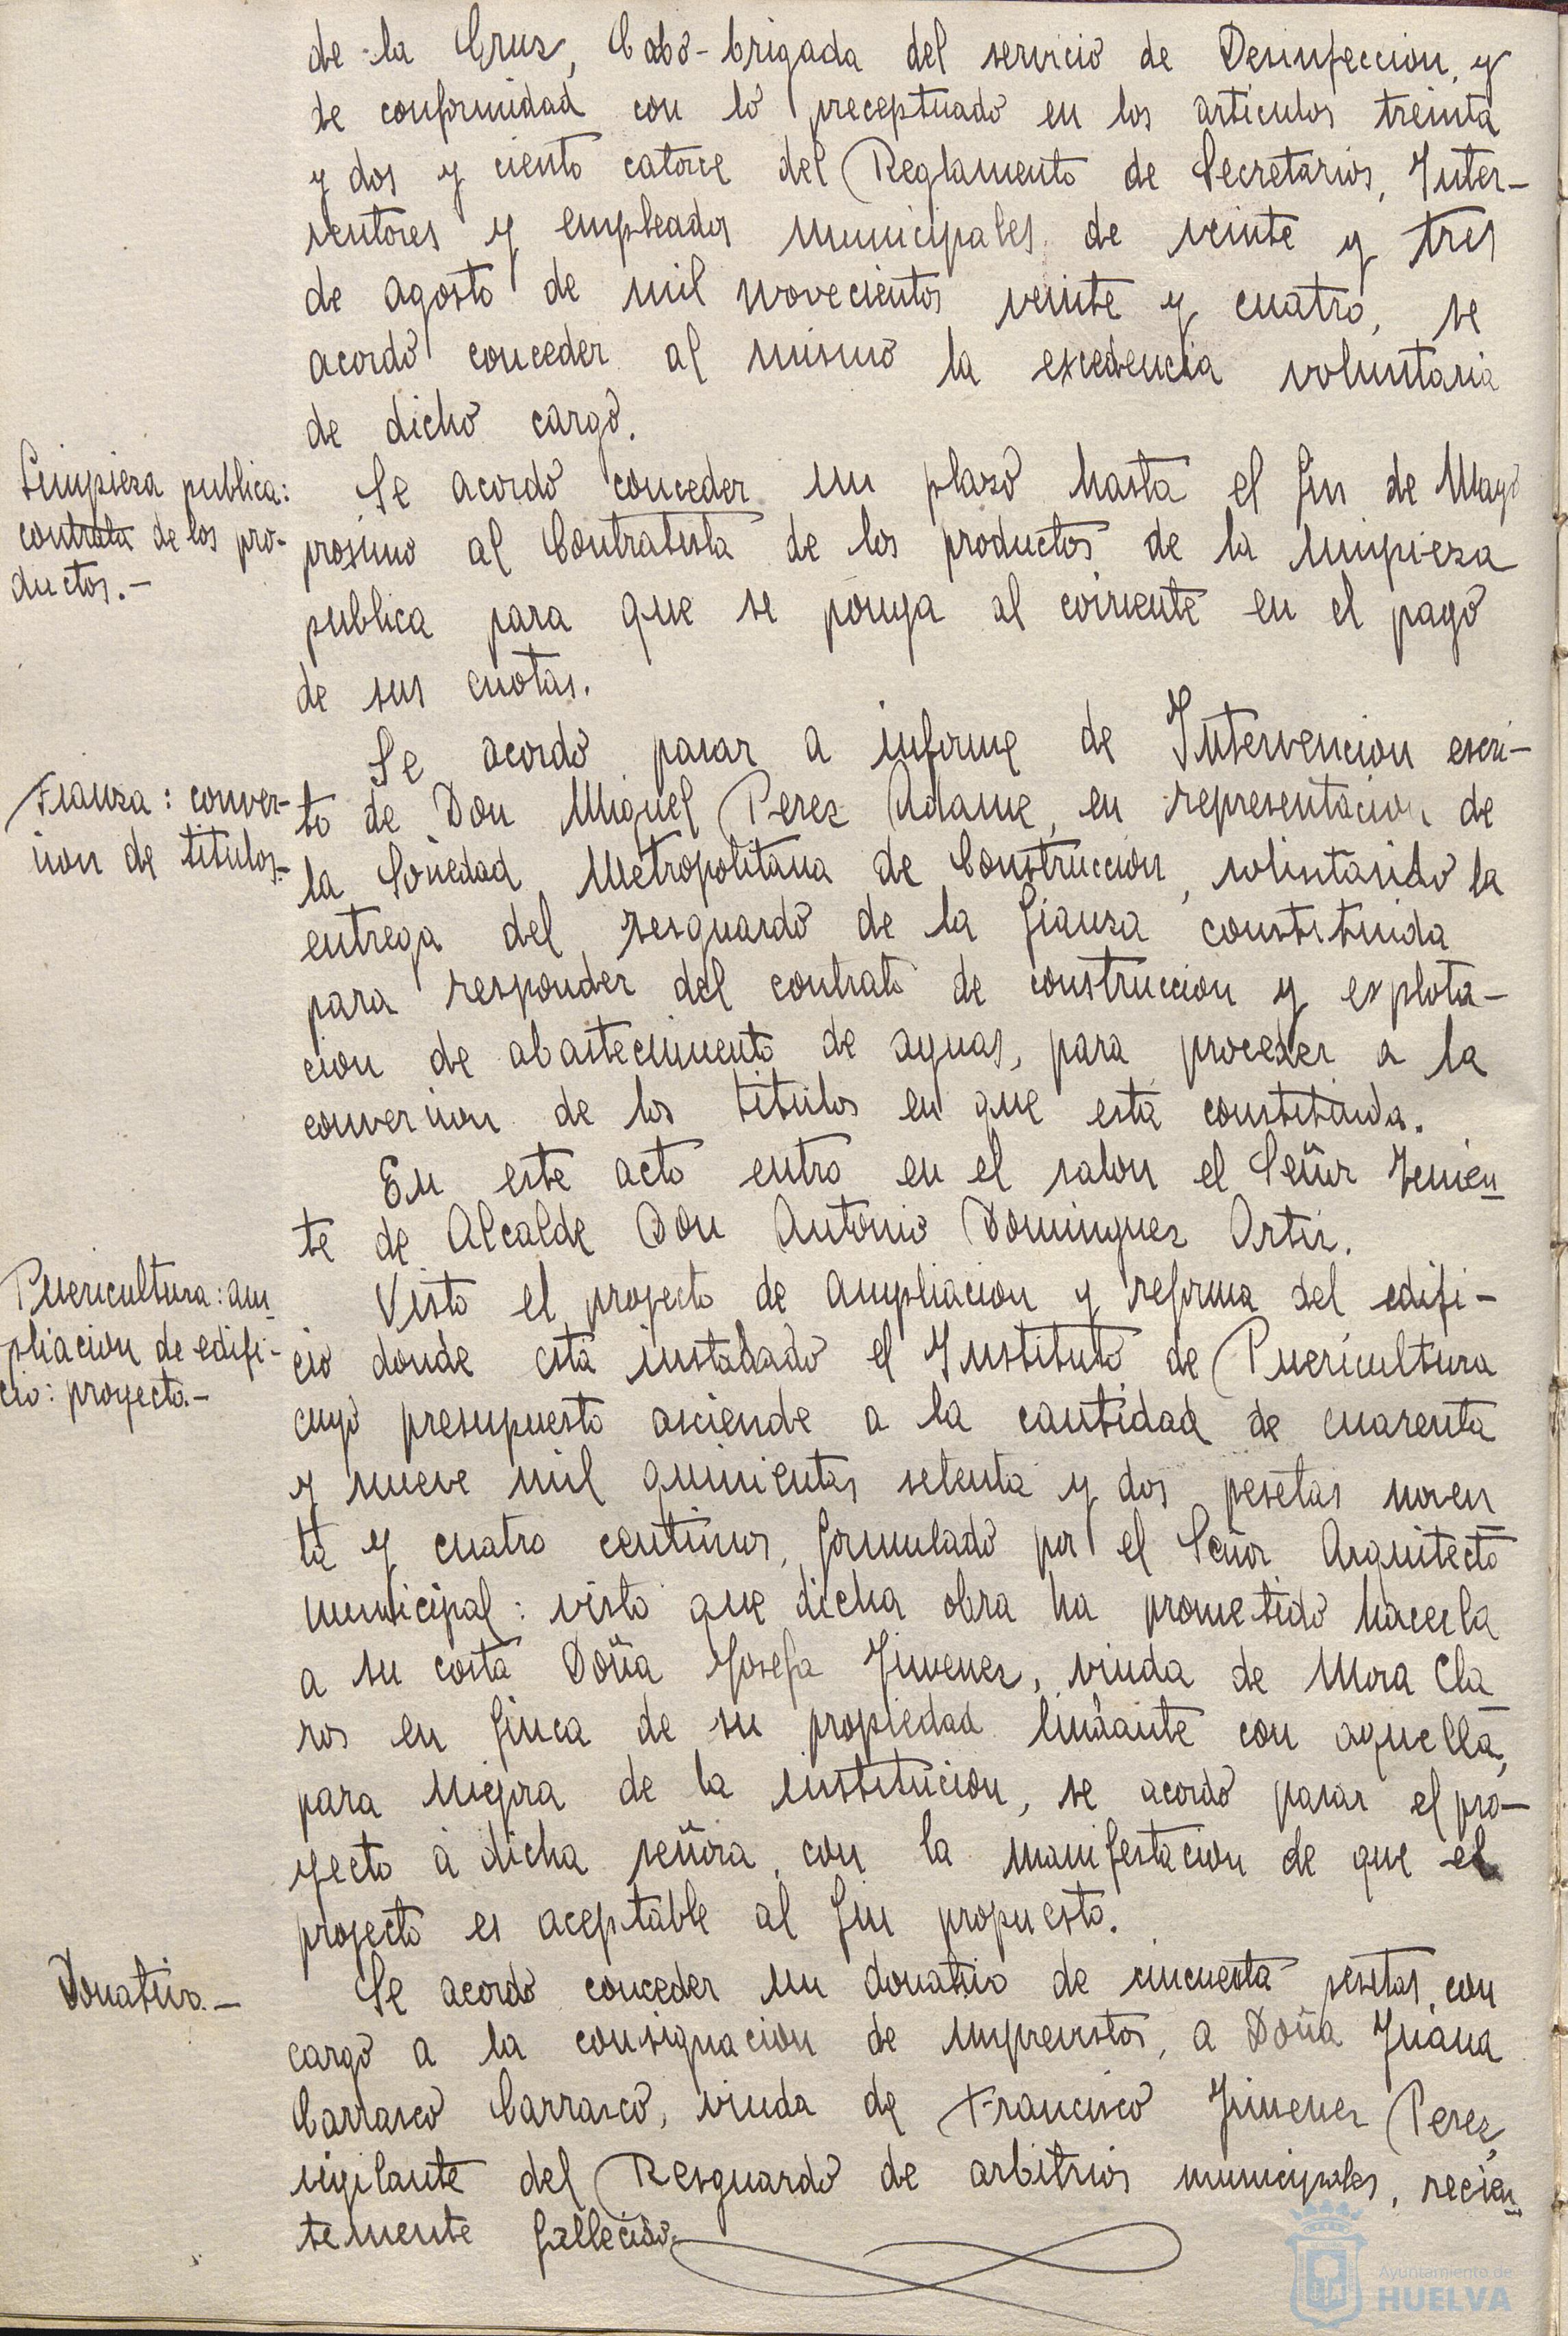 de la Cruz, Cabo-brigada del servicio de Desinfeccion, y
de conformidad con lo preceptuado en los articulos treinta
y dos y ciento catorce del Reglamento de Secretarios, Inter-
ventores y empleados municipales de veinte y tres
de agosto de mil novecientos veinte y cuatro, se
acordó conceder al mismo la excedencia voluntaria
de dicho cargo.
Limpieza publica:
contrata de los pro-
ductos.-
Se acordó conceder un plazo hasta el fin de Mayo
proximo al Contratista de los productos de la limpieza
publica para que se ponga al corriente en el pago
de sus cuotas.
Fianza: conver-
sion de titulos.-
Se acordó pasar a informe de Intervencion escri-
to de Don Miguel Perez Adame, en representacion de
la Sociedad Metropolitana de Construccion, solicitando la
entrega del resguardo de la fianza constituida
para responder del contrato de construccion y explota-
cion de abastecimiento de aguas, para proceder a la
conversion de los titulos en que está constituida.
En este acto entro en el salon el Señor Tenien
te de Alcalde Don Antonio Dominguez Ortiz.
Puericultura: am
pliacion de edifi-
cio: proyecto.-
Visto el proyecto de ampliacion y reforma del edifi-
cio donde está instalado el Instituto de Puericultura
cuyo presupuesto asciende a la cantidad de cuarenta
y nueve mil quinientas setenta y dos pesetas noven
ta y cuatro centimos, formulado por el Señor Arquitecto
municipal: visto que dicha obra ha prometido hacerla
a su costa Doña Josefa Jimenez, viuda de Mora Cla
ros en finca de su propiedad lindante con aquella,
para mejora de la institucion, se acordó pasar el pro-
yecto á dicha señora, con la manifestacion de que el
proyecto es aceptable al fin propuesto.
Donativo.-
Se acordó conceder un donativo de cincuenta pesetas, con
cargo a la consignacion de imprevistos, a Doña Juana
Carrasco Carrasco, viuda de Francisco Jimenez Perez,
vigilante del Resguardo de arbitrios municipales, recien
temente fallecido.
Ayuntamiento de
HUELVA